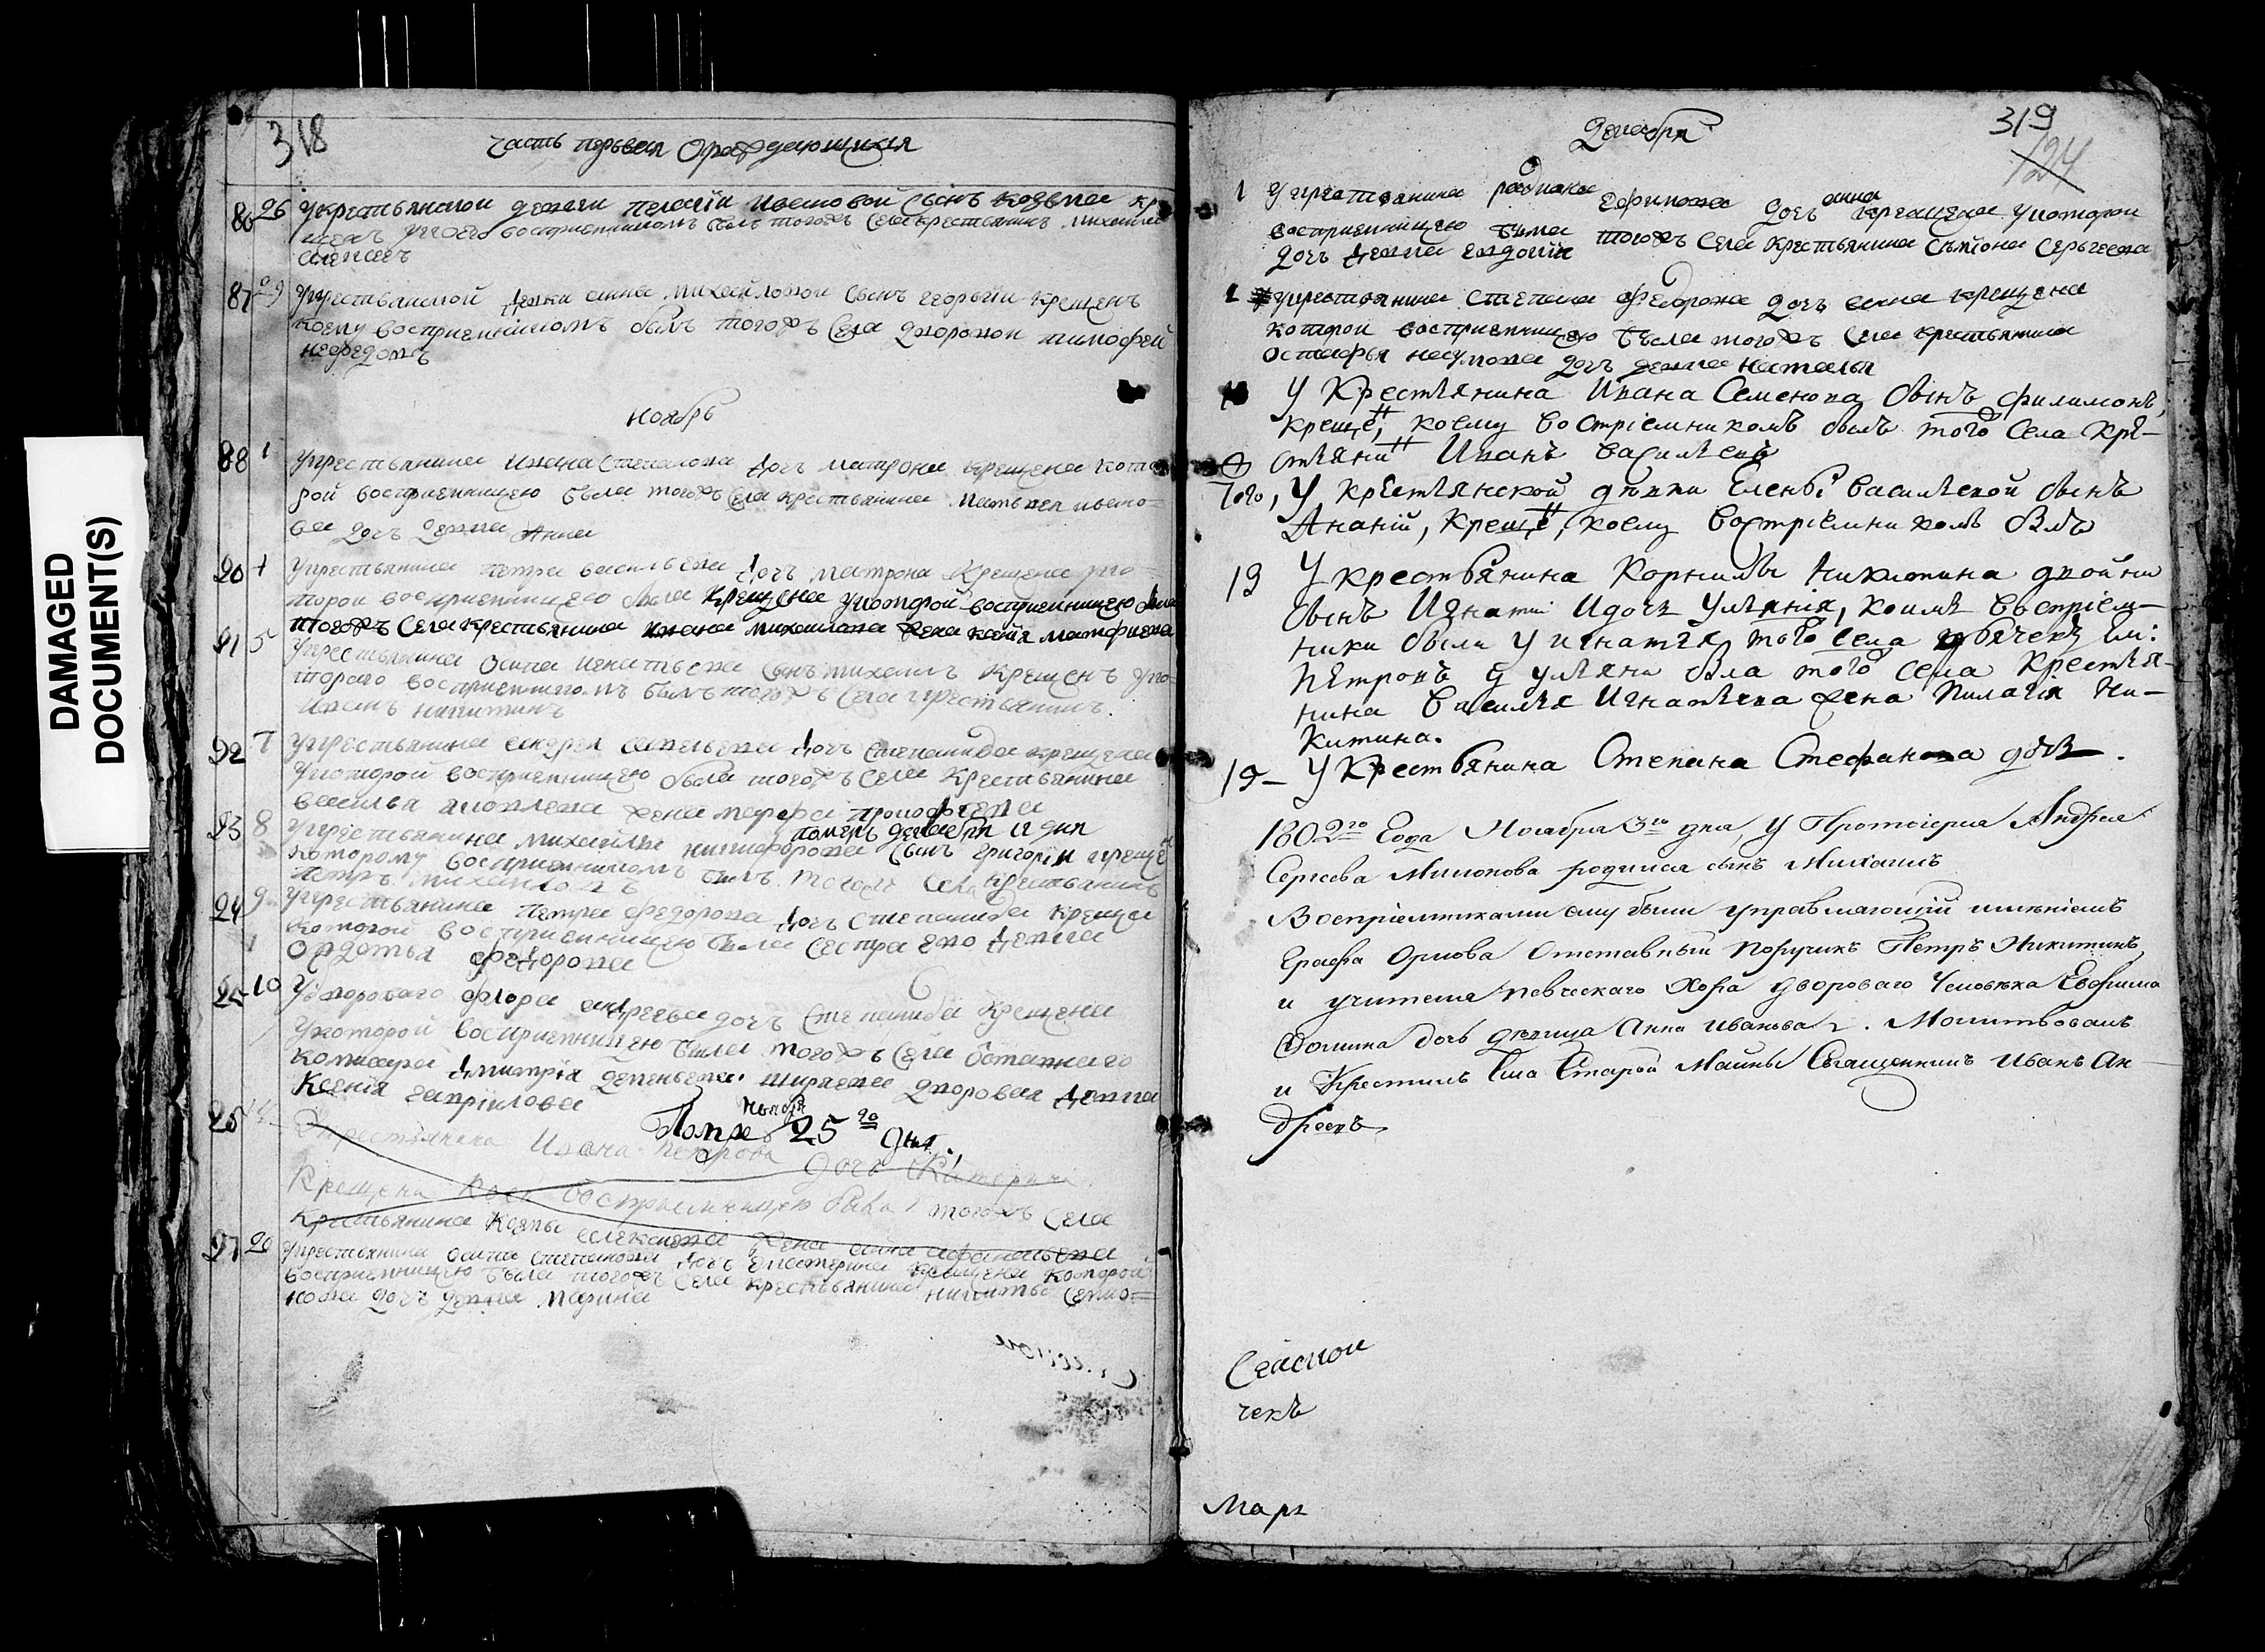 DAMAGED
DOCUMENT(S)
318
часть первая О раждающихся
86 26 У крестьянской девки Пелагіи Ивановой сынъ Козьма кр
щенъ у коего восприемникомъ былъ тогожъ села крестьянинъ Михайла
Алексеевъ
87 29 У крестьянской девки Анны Михайловой сынъ Георьгий крещенъ
коему восприемникомъ былъ тогожъ села дворовой Тимофей
Нефедовъ
ноябрь
88 1 У крестьянина Ивана Степанова дочь Матрона крещена кото
рой восприемницею была тогожъ села крестьянина Матвея Ивано=
ва дочь девка Анна
90 4 У крестьянина Петра Васильева дочь Матрона крещена уко
торой восприемницею была крещена укоторой восприемницею была
тогожъ села крестьянина Ивана Михайлова жена Матфиева
91 5 У крестьянина Осипа Игнатьева сынъ Михаилъ крещенъ уко
тораго восприемникомъ былъ тогожъ села крестьянинъ
Иванъ Никитинъ
92 7 У крестьянина Андрея Савельева дочь Степанида крещена
укоторой восприемницею была тогожъ села крестьянина
Василья Яковлева жена Марфа Прокофьева
померъ декабря 11 дня
93 8 У крестьянина Михайлы Никифорова сынъ Григорій креще
которому восприемникомъ былъ тогожъ села крестьянинъ
Петръ Михайловъ
94 9 У крестьянина Петра Федорова дочь Степанида креще
которой восприемницею была сестра ево девка
Овдотья Федорова
95 10 У дворового Флора Андреева дочь Степанида крещена
укоторой восприемницею была тогожъ села
комисара Дмитрія дворовая девка
Ксенія Гаврилова
Помре ноября 25го дня
У крестьянина Ивана Петрова дочь Катерина
крещена коей восприемницею была тогожъ села
крестьянина Карпы Алексеева жена Анна Афанасьева
97 20 У крестьянина Осипа Степанова дочь Екатерина крещена которой
восприемницею была тогожъ села крестьянина Никиты Семио=
нова дочь девка Марина
319
124
Декабря
1 У крестьянина Родиона Ефимова дочь Анна крещена укоторой
восприемницею была тогожъ села крестьянина Семиона Серьгеева
дочь девка Евдокия
1 У крестьянина Степана Федорова дочь Анна крещена
которой восприемницею была тогожъ села крестьянина
Остафья Наумова дочь девка Наталья
У крестьянина Ивана Семенова сынъ Филимонъ,
креще, коему востріемникомъ былъ того села кре-
стьяни Иванъ Васильевъ
Того, У крестьянской девки Елены Васильевой сынъ
Ананій, креще, коему востріемникомъ былъ
13 У крестьянина Корнилы Никитина двойни
сынъ Игнатій и дочь Ульянія, коимъ воспріем-
ники были у Игнатія того села
Петровъ у Ульяни была того села крестья-
нина Василья Игнатьева жена Пилагія Ни-
китина.
19- У крестьянина Степана Стефанова дочь
1802го Года Ноября 3го дня, у Протоіерея Андрея
Сергеева Милонова родился сынъ Михаилъ
Воспріемниками ему были управляющій имѣніемъ
Графа Орлова Отставный Поручикъ Петръ Никитинъ
и учителя певческаго Хора дворового Человѣка Евфима
Фомина дочь дѣвица Анна Иванова. Молитвовалъ
и Крестилъ Села Старой Майны Священникъ Иванъ Ан-
дреевъ
Селскои
чекъ
Марх